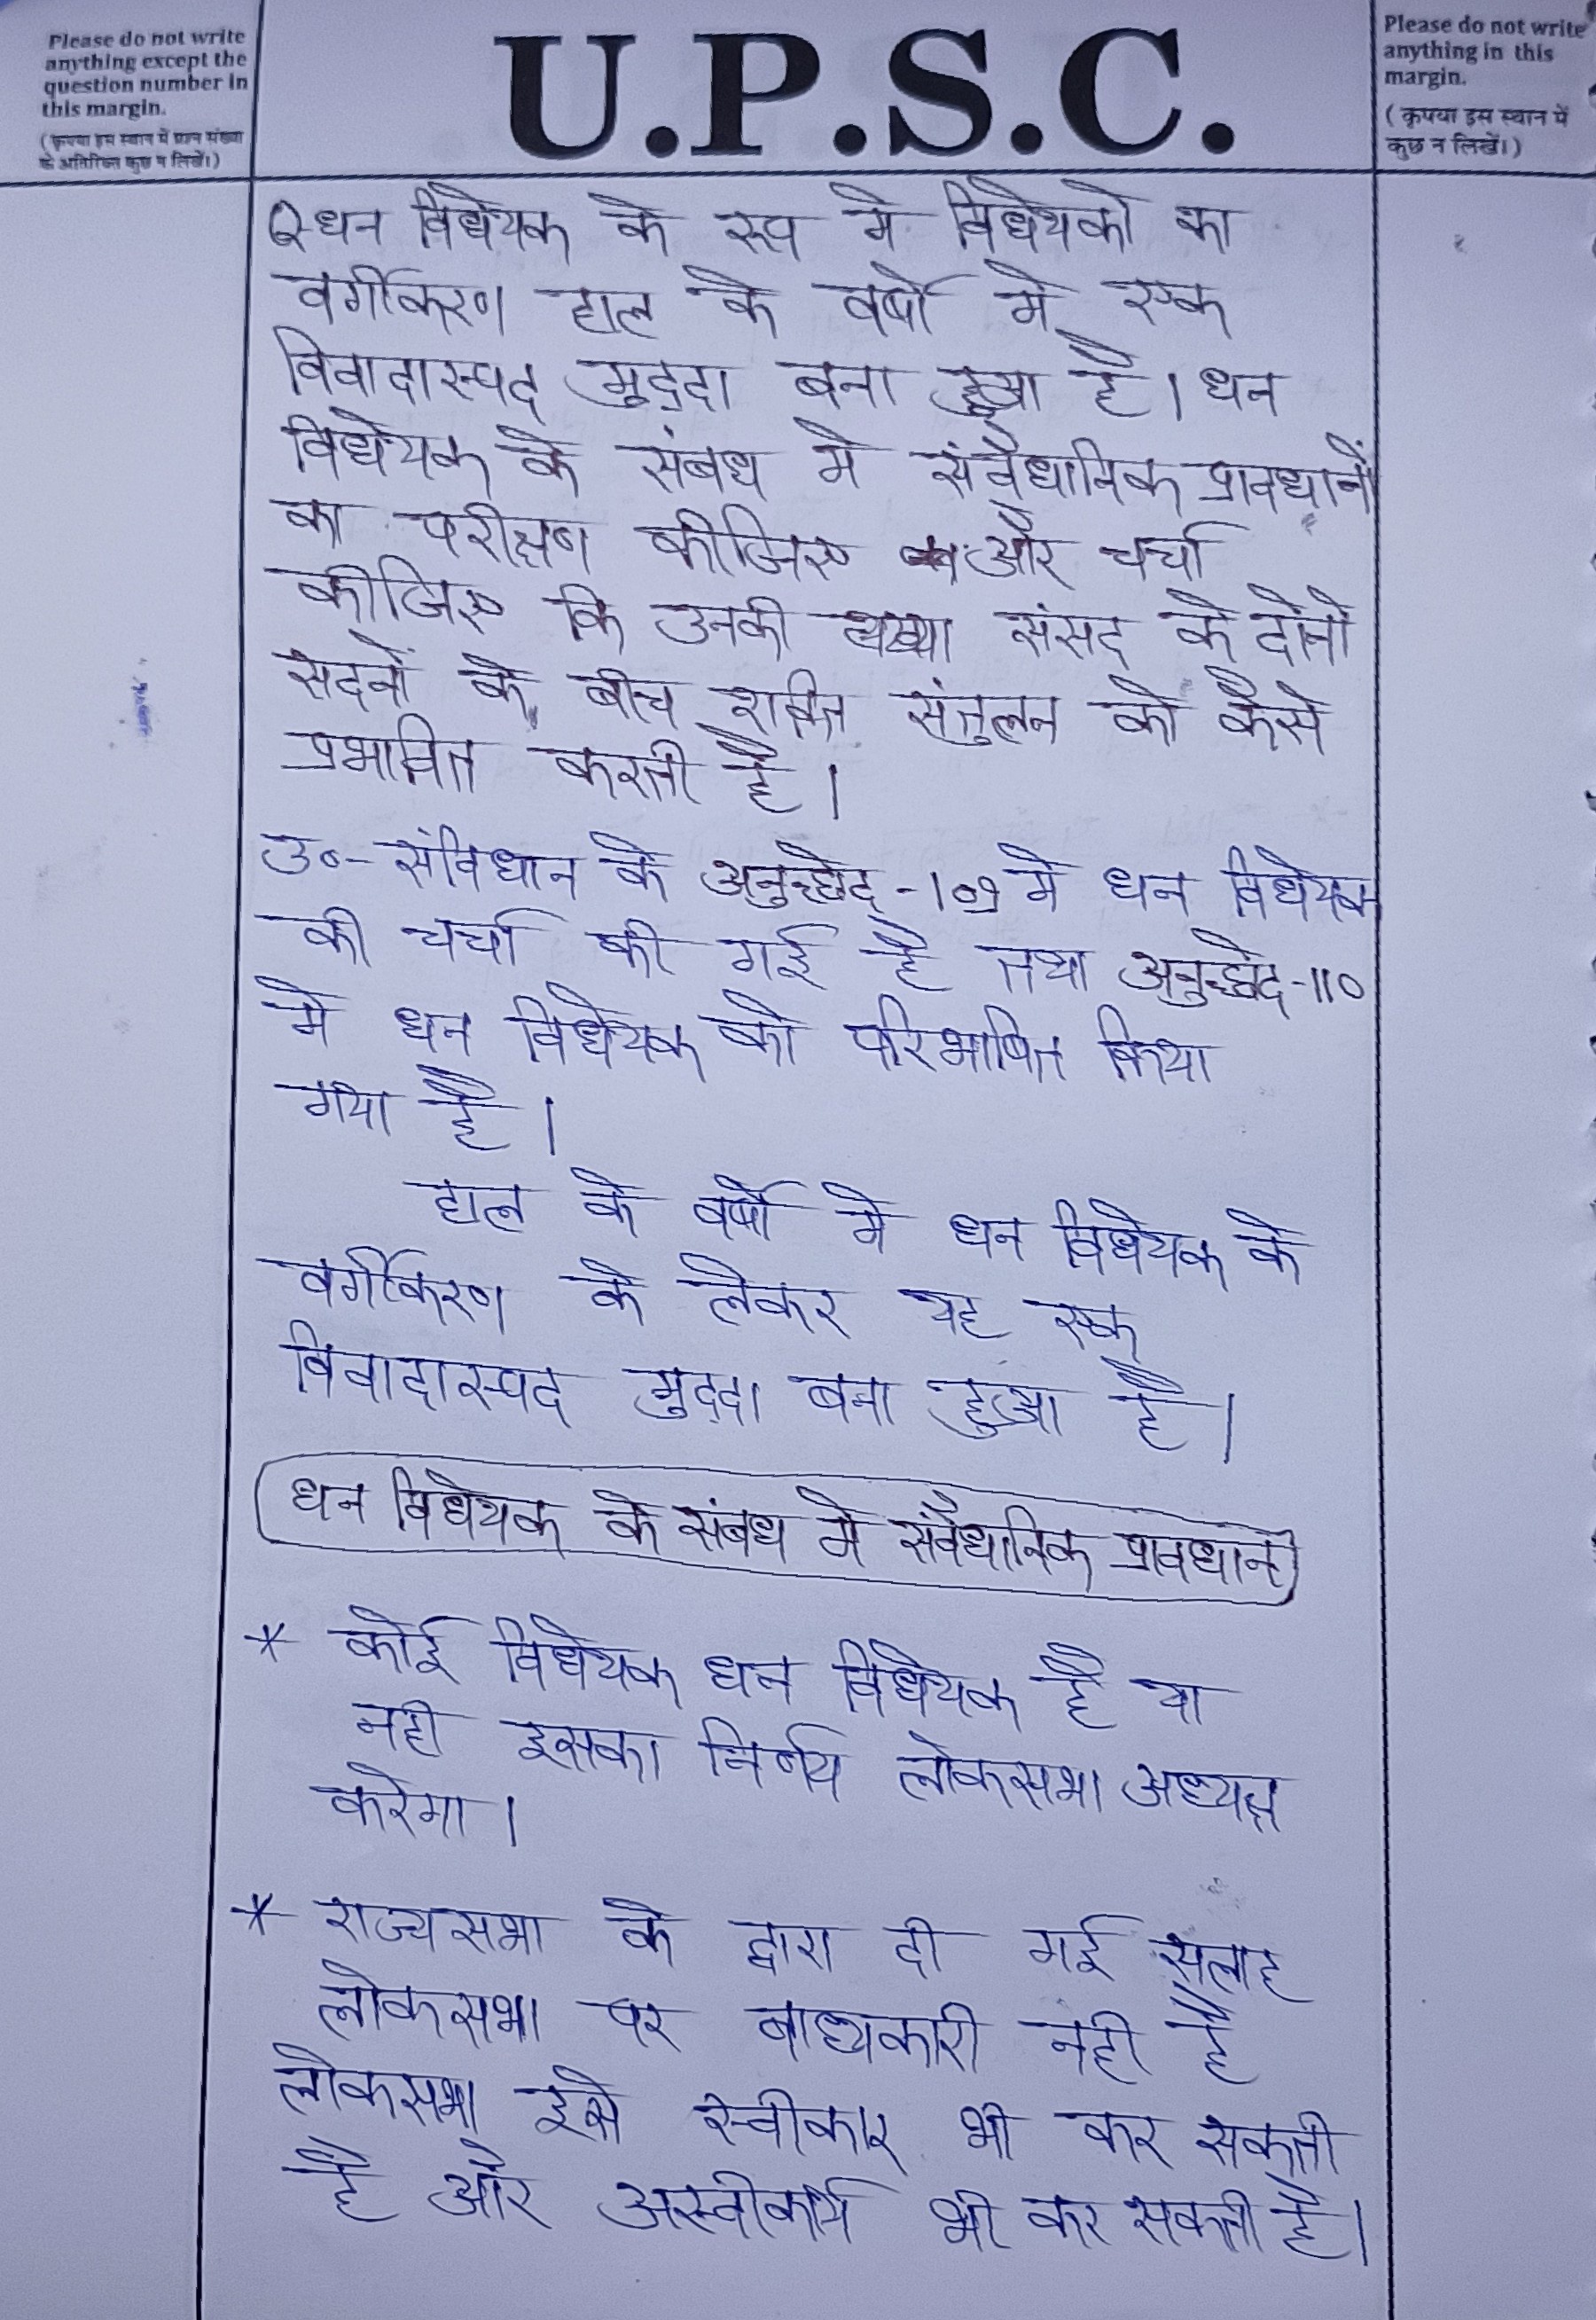 Please do not write
anything except the
question number in
this margin.
(कृपया इस स्थान में प्रश्न संख्या
के अतिरिक्त कुछ न लिखें।)
U.P.S.C.
Please do not write
anything in this
margin.
(कृपया इस स्थान में
कुछ न लिखें।)
Q धन विधेयक के रूप मे विधेयको का
वर्गीकरण हाल के वर्षो मे एक
विवादास्पद मुद्दा बना हुआ है। धन
विधेयक के संबध मे संवैधानिक प्रावधानों
का परीक्षण कीजिए और चर्चा
कीजिए कि उनकी व्यख्या संसद के दोनो
सदनों के बीच शक्ति संतुलन को कैसे
प्रभावित करती है।
उ०- संविधान के अनुच्छेद-109 मे धन विधेयक
की चर्चा की गई है तथा अनुच्छेद-110
मे धन विधेयक को परिभाषित किया
गया है।
हाल के वर्षो मे धन विधेयक के
वर्गीकरण के लेकर यह एक
विवादास्पद मुद्दा बना हुआ है।
धन विधेयक के संबध मे संवैधानिक प्रावधान
* कोई विधेयक धन विधेयक है या
नही इसका निर्णय लोकसभा अध्यक्ष
करेगा।
* राज्यसभा के द्वारा दी गई सलाह
लोकसभा पर बाध्यकारी नही है
लोकसभा इसे स्वीकार भी कर सकती
है और अस्वीकार्य भी कर सकती है।